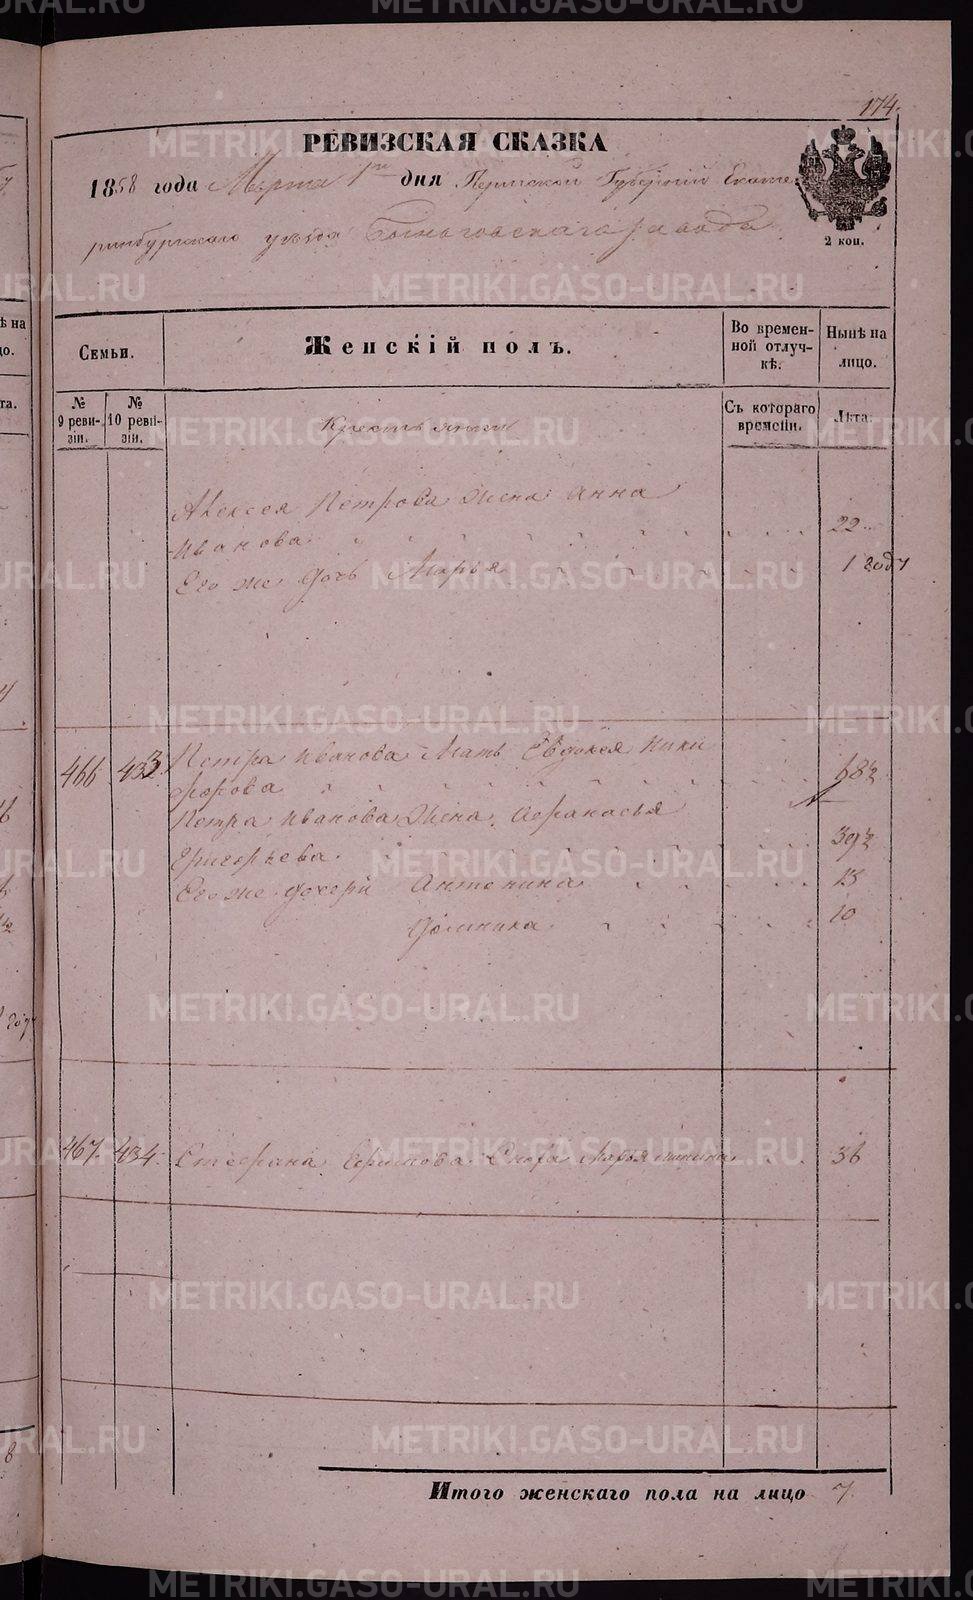 174.
РЕВИЗСКАЯ СКАЗКА
1858 года Марта 1го дня Пермской Губерніи Екате
ринбургскаго уѣзда Быньговскаго завода
2 коп.
Семьи.
Женскій полъ.
Во времен-
ной отлуч-
кѣ.
Нынѣ на
лицо.
№
9 реви-
зіи.
№
10 реви-
зіи.
Съ котораго
времени.
Лѣта.
Крестьянки
Алексея Петрова Жена Анна
Иванова 22
Его же дочь Марья 1 году
466 433 Петра Иванова Мать Евдокея Ники
форова 68½
Петра Иванова Жена Афанасья
Григорьева. 39½
Его же дочери Антонина 13
Доминика 10
467. 434. Стефана Сноха Марья 36
Итого женскаго пола на лицо 7.
METRIKI.GASO-URAL.RU